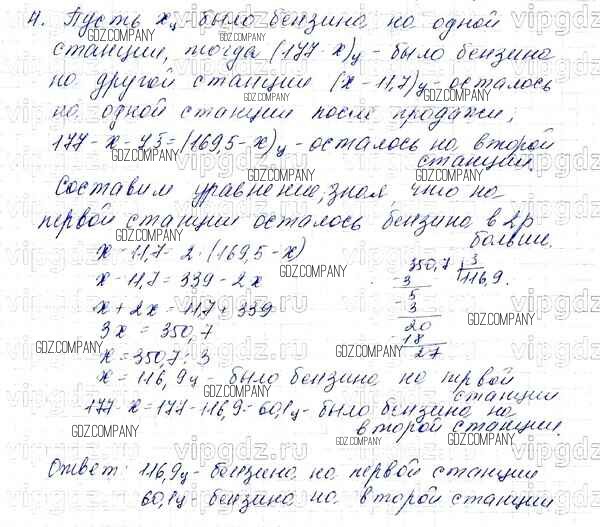 4. Пусть x ц было бензина на одной
станции, тогда (177-x) ц - было бензина
на другой станции (x-11,7) ц - осталось
на одной станции после продажи;
177-x-7,5=(169,5-x) ц - осталось на второй
станции.
Составим уравнение, зная, что на
первой станции осталось бензина в 2 р
больше.
x-11,7=2·(169,5-x)
x-11,7=339-2x
x+2x=11,7+339
3x=350,7
x=350,7:3
x=116,9 ц - было бензина на первой
станции
177-x=177-116,9=60,1 ц - было бензина на
второй станции.
350,7 3
-3 116,9.
-5
3
20
18
27
Ответ: 116,9 ц - бензина на первой станции
60,1 ц - бензина на второй станции
GDZ.COMPANY
vipgdz.ru